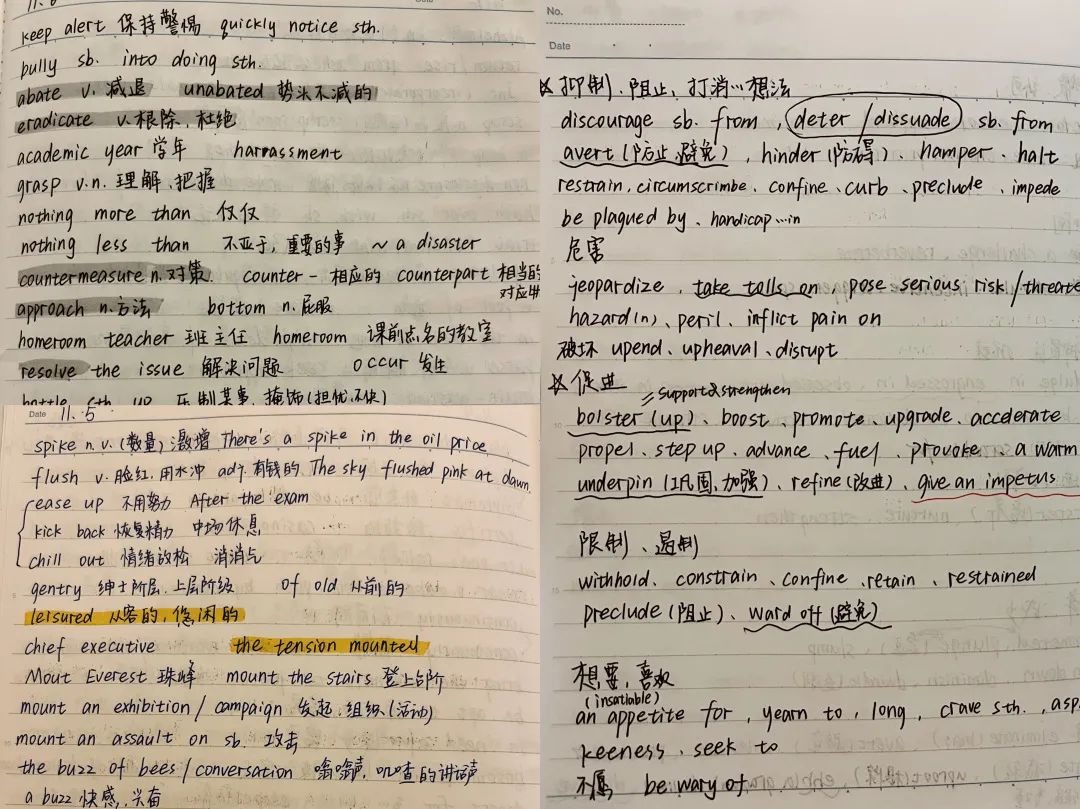 keep alert 保持警惕 quickly notice sth.
bully sb. into doing sth.
abate v. 减退 unabated 势头不减的
eradicate v. 根除,杜绝
academic year 学年 harrassment
grasp v.n. 理解、把握
nothing more than 仅仅
nothing less than 不亚于,重要的事 ~ a disaster
countermeasure n. 对策 counter- 相应的 counterpart 相当的
对应
approach n. 方法 bottom n. 屁股
homeroom teacher 班主任 homeroom 课前点名的教室
resolve the issue 解决问题 occur 发生
bottle sth. up 压制某事、掩饰(担忧,不快)
Date 11.5
spike n. v. (数量)激增 There's a spike in the oil price
flush v. 脸红,用水冲 adj. 有钱的 The sky flushed pink at dawn.
ease up 不用努力 After the exam
kick back 恢复精力 中场休息
chill out 情绪放松 消消气
gentry 绅士阶层、上层阶级 of old 从前的
leisured 从容的,悠闲的
chief executive the tension mounted
Mout Everest 珠峰 mount the stairs 登上台阶
mount an exhibition / campaign 发起、组织(活动)
mount an assault on sb. 攻击
the buzz of bees / conversation 嗡嗡声,叽喳的讲话声
a buzz 快感,兴奋
No.
Date
抑制、阻止,打消…想法
discourage sb. from, deter / dissuade sb. from
avert (防止、避免), hinder (妨碍)、hamper、halt
restrain, circumscrimbe、confine、curb、preclude、impede
be plagued by、handicap…in
危害
jeopardize、take talls on pose serious risk / threate
hazard (n)、peril、inflict pain on
破坏 upend、upheaval、disrupt
促进
support & strengthen
bolster (up)、boost、promote、upgrade、accelerate
propel、step up、advance、fuel、provoke、a warm
underpin (巩固,加强)、refine (改进)、give an impetus
限制、遏制
withhold、constrain、confine、retain、restrained
preclude (阻止)、ward off (避免)
想要,喜欢
(insatiable)
an appetite for, yearn to, long, crave sth., asp
keeness、seek to
be wary of